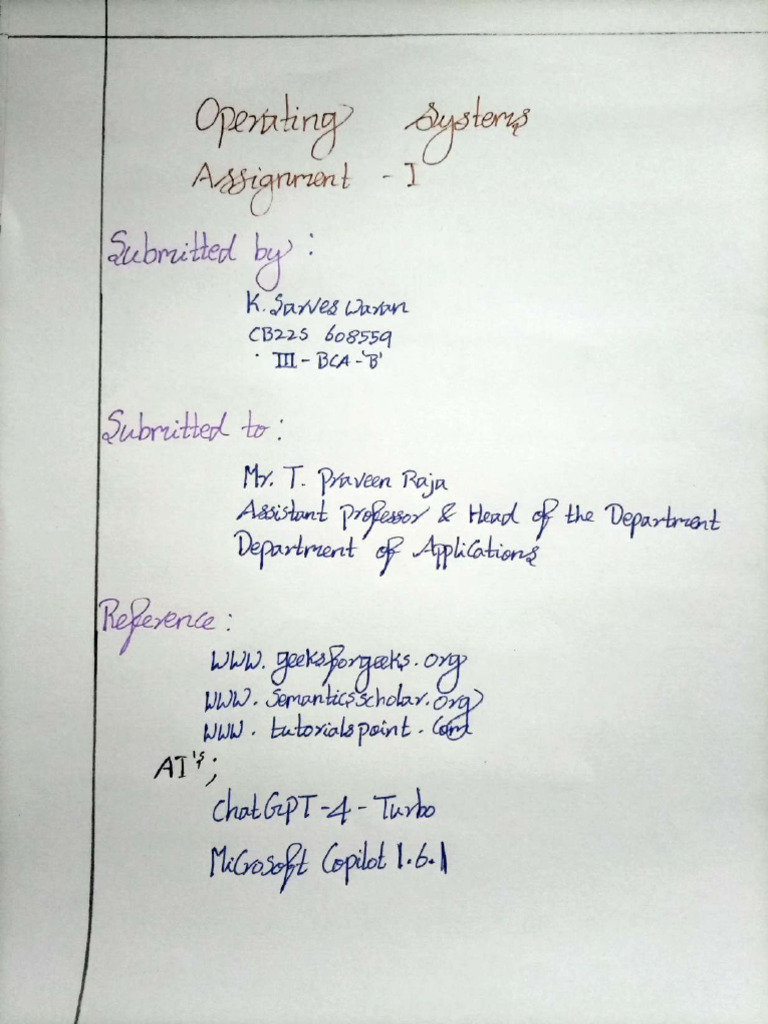 Operating Systems
Assignment - I
Submitted by :
K. Sarves waran
CB22S 608559
III - BCA - 'B'
Submitted to :
Mr. T. Praveen Raja
Assistant Professor & Head of the Department
Department of Applications
Reference :
WWW. geeksforgeeks. org
WWW. Semanticsscholar. org
WWW. tutorialspoint. Com
AI's ;
ChatGPT-4 - Turbo
Microsoft Copilot 1.6.1